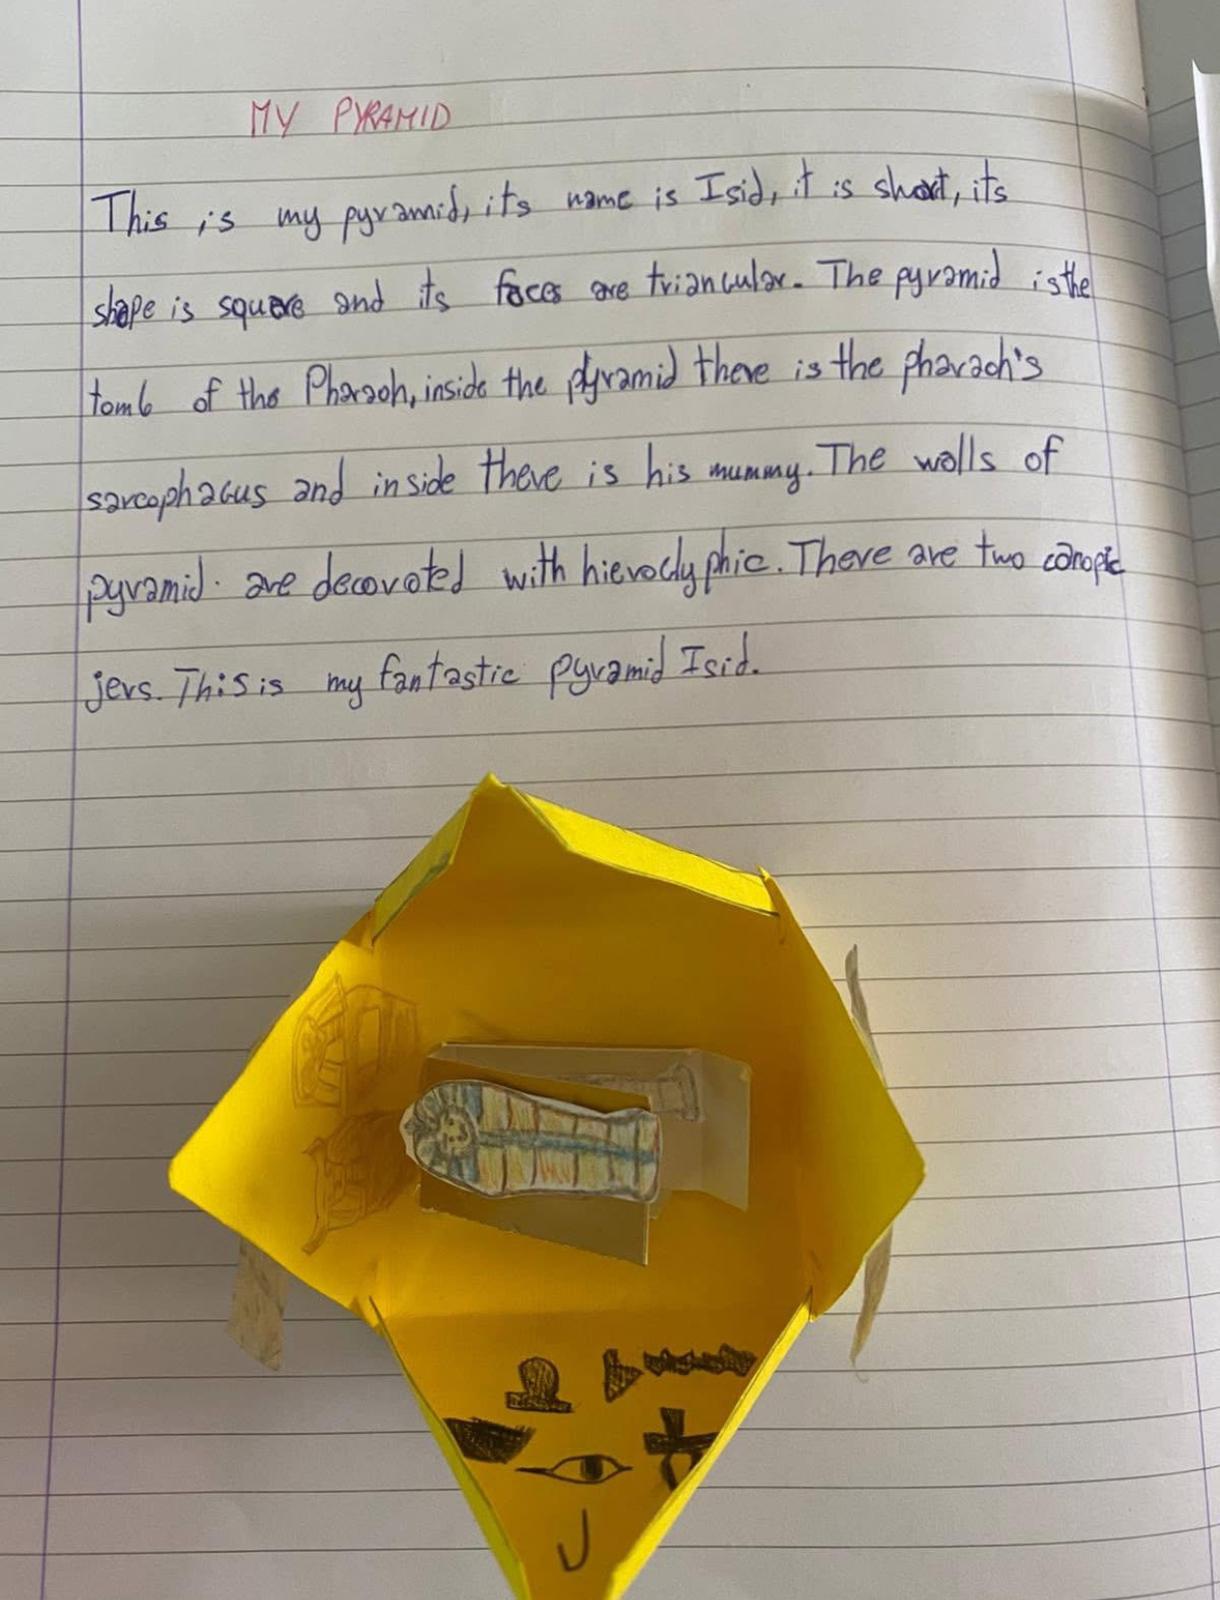 MY PYRAMID
This is my pyramid, its name is Isid, it is short, its
shape is square and its faces are triancular. The pyramid is the
tomb of the Pharaoh, inside the pyramid there is the pharaoh's
sarcophacus and inside there is his mummy. The walls of
pyramid. are decorated with hieroclyphic. There are two canopic
jers. This is my fantastic pyramid Isid.